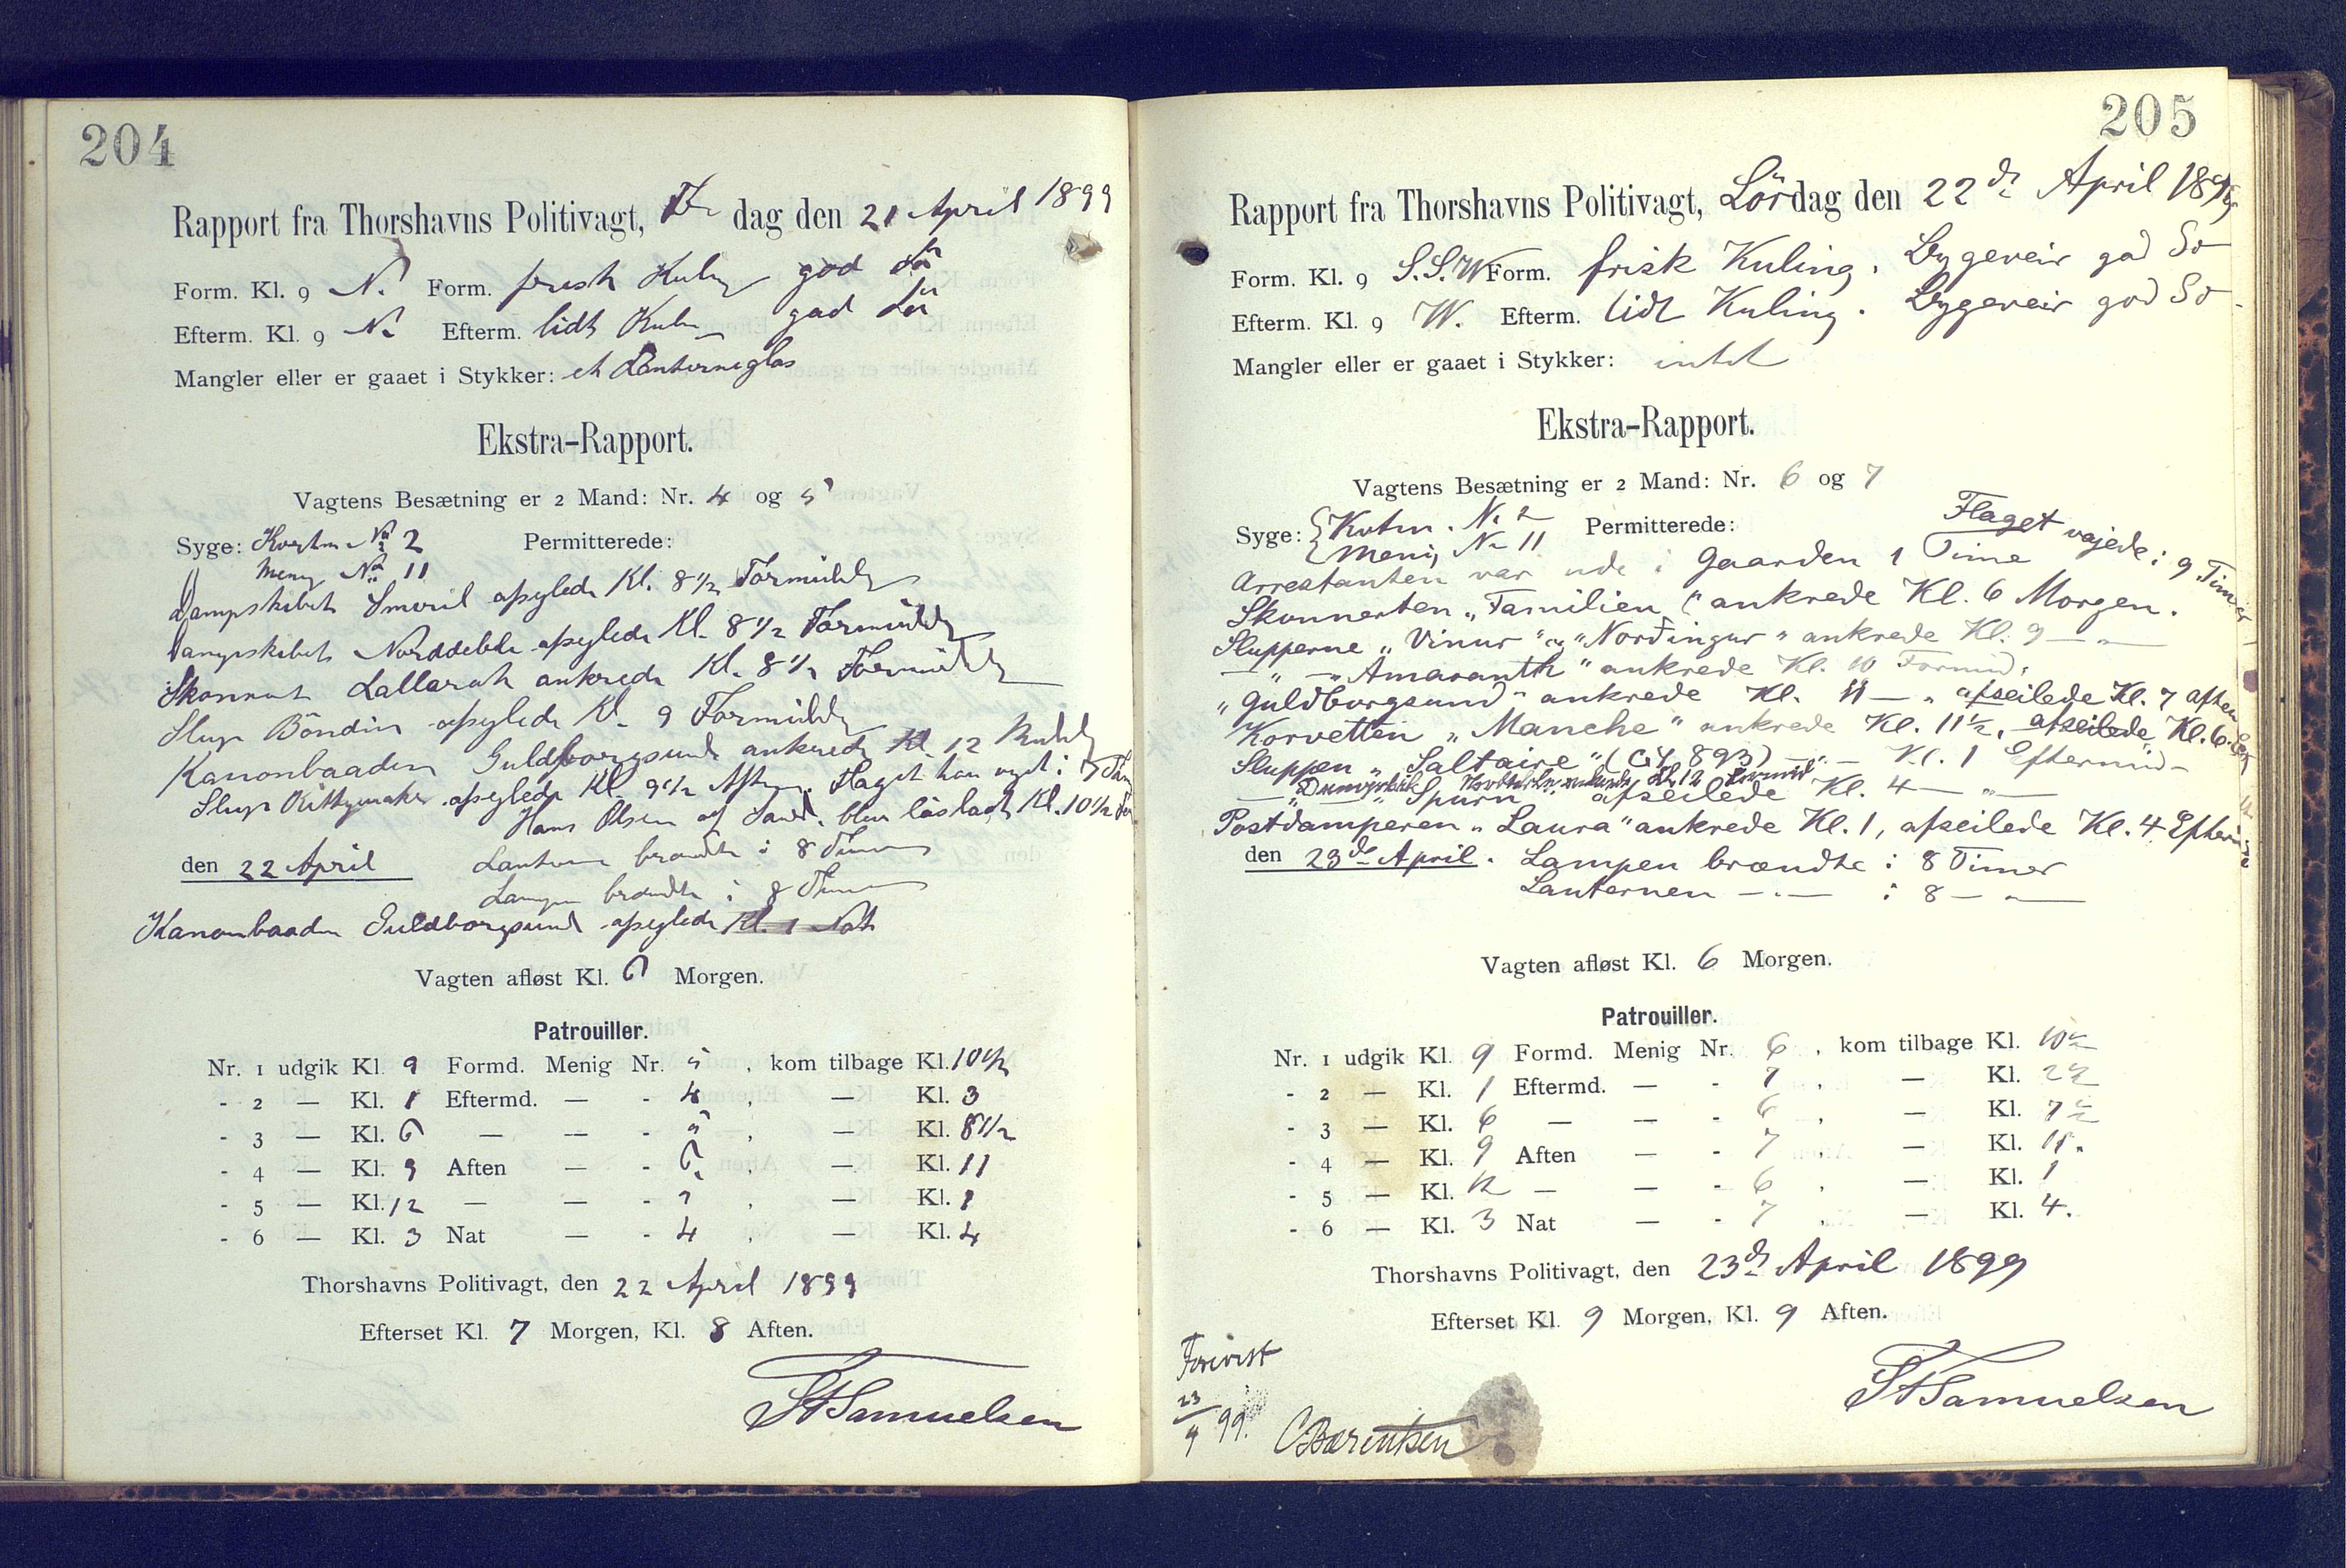 204
Rapport fra Thorshavns Politivagt, Fre dag den 21 April 1899
Form. Kl. 9 N. Form. frisk Kuling god Sö
Efterm. Kl. 9 N. Efterm. lidt Kuling god Sö
Mangler eller er gaaet i Stykker: et Lanterneglas
Ekstra-Rapport.
Vagtens Besætning er 2 Mand: Nr. 4 og 5
Syge: Kvartm No 2 Permitterede:
Menig No 11
Dampskibet Smiril afseglede Kl. 8 1/2 Formiddag
Dampskibet Norddeble afseglede Kl. 8 1/2 Formiddag
Skonnert Lallarah ankrede Kl. 8 1/2 Formiddag
Slup Böndin afseglede Kl. 9 Formiddag
Kanonbaaden Guldborgsund ankrede Kl. 12 Middag
Slup Kittywake afseglede Kl. 9 1/2 Aften. Flaget har vajet i 7 Tim
Hans Olsen af Sand. blev lösladt Kl. 10 1/2 For
den 22 April Lanternen brændte i 8 Timer
Lampen brændte i 8 Timer
Kanonbaaden Guldborgsund afseglede Kl. 1 Nat
Vagten afløst Kl. 6 Morgen.
Patrouiller.
Nr. 1 udgik Kl. 9 Formd. Menig Nr. 5 , kom tilbage Kl. 10 1/2
- 2 — Kl. 1 Eftermd. — - 4 , — Kl. 3
- 3 — Kl. 6 — — - 5 , — Kl. 8 1/2
- 4 — Kl. 9 Aften — - 6. , — Kl. 11
- 5 — Kl. 12 — — - 7 , — Kl. 1
- 6 — Kl. 3 Nat — - 4 , — Kl. 4
Thorshavns Politivagt, den 22 April 1899
Efterset Kl. 7 Morgen, Kl. 8 Aften.
Samuelsen
205
Rapport fra Thorshavns Politivagt, Lördag den 22de April 1899
Form. Kl. 9 S.S.W Form. frisk Kuling. Bygeveir god Sö
Efterm. Kl. 9 W. Efterm. lidt Kuling. Bygeveir god Sö
Mangler eller er gaaet i Stykker: intet
Ekstra-Rapport.
Vagtens Besætning er 2 Mand: Nr. 6 og 7
Flaget vajede i 9 Timer
Syge: { Kvtm. No 2 Permitterede:
{ Menig No 11
Arrestanten var ude i Gaarden 1 Time
Skonnerten „Familien" ankrede Kl. 6 Morgen.
Slupperne „Vinur" og „Nordingur" ankrede Kl. 9 — „ —
— „ — „Amaranth" ankrede Kl. 10 Formid.
„Guldborgsund" ankrede Kl. 11 — „ afseilede Kl. 7 aften
Korvetten „Manche" ankrede Kl. 11 1/2, afseilede Kl. 6
Sluppen „Saltaire" (GY. 893) — „ — Kl. 1 Eftermid—
Kl. 12 Formid
— „ — „Spurn" afseilede Kl. 4 — „ —
Postdamperen „Laura" ankrede Kl. 1, afseilede Kl. 4 Eftermid
den 23de April. Lampen brændte i 8 Timer
Lanternen — „ — i 8 — „ —
Vagten afløst Kl. 6 Morgen.
Patrouiller.
Nr. 1 udgik Kl. 9 Formd. Menig Nr. 6 , kom tilbage Kl. 10 1/2
- 2 — Kl. 1 Eftermd. — - 7 , — Kl. 2 1/2
- 3 — Kl. 6 — — - 6 , — Kl. 7 1/2
- 4 — Kl. 9 Aften — - 7 , — Kl. 11.
- 5 — Kl. 12 — — - 6 , — Kl. 1
- 6 — Kl. 3 Nat — - 7 , — Kl. 4.
Thorshavns Politivagt, den 23de April 1899
Efterset Kl. 9 Morgen, Kl. 9 Aften.
Samuelsen
Forevist
23/4 99. CBærentsen